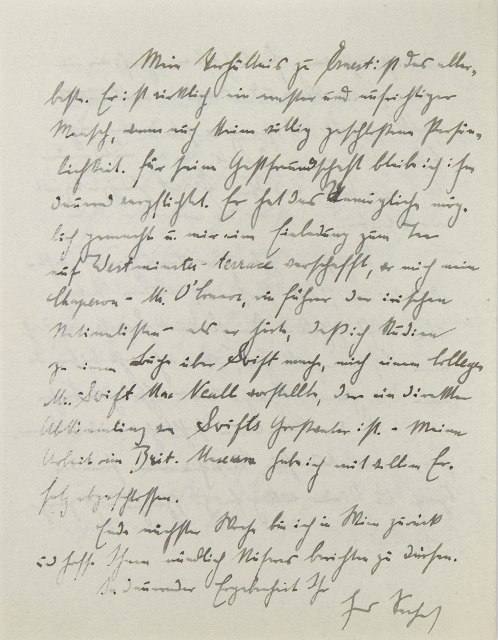 Mein Verhältnis zu Ernest ist das aller-
beste. Er ist wirklich ein wahrer und aufrichtiger
Mensch, wenn auch keine völlig geschlossene Persön-
lichkeit. Für seine Gastfreundschaft bleibe ich ihm
dauernd verpflichtet. Er hat das Unmögliche mög-
lich gemacht u. mir eine Einladung zum Tee
auf Westminster-terrace verschafft, wo mich mein
Chaperon - Mr. O'Connor, ein Führer der irischen
Nationalisten - als er hörte, daß ich Studien
zu einem Buche über Swift mache, mich einem Collegen
Mr. Swift Mac Neall vorstellte, der ein direkter
Abkömmling von Swifts Großvater ist. - Meine
Arbeit im Brit. Museum habe ich mit vollem Er-
folg abgeschlossen.
Ende nächster Woche bin ich in Wien zurück
und hoffe Ihnen mündlich Näheres berichten zu dürfen.
In dauernder Ergebenheit Ihr